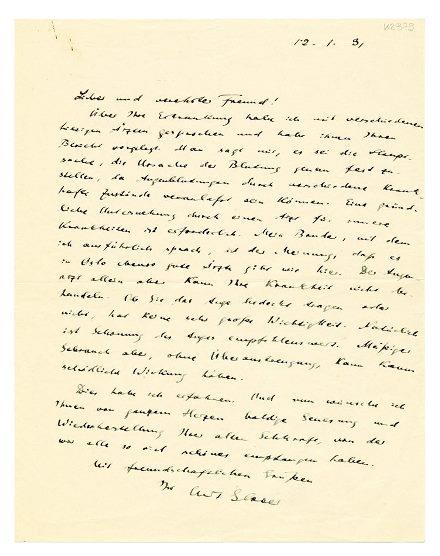 K2379
12. 1. 31
Lieber und verehrter Freund!
Über Ihre Erkrankung habe ich mit verschiedenen
hiesigen Ärzten gesprochen und habe ihnen Ihren
Bericht vorgelegt. Man sagt mir, es sei die Haupt-
sache, die Ursache der Blutung genau fest zu
stellen, da Augenblutungen durch verschiedene Krank-
hafte Zustände veranlaßt sein können. Eine gründ-
liche Untersuchung durch einen Arzt für innere
Krankheiten ist erforderlich. Mein Bruder, mit dem
ich ausführlich sprach, ist der Meinung, daß es
in Oslo ebenso gute Ärzte gibt wie hier. Der Augen-
arzt allein aber kann Ihre Krankheit nicht be-
handeln. Ob Sie das Auge bedeckt tragen oder
nicht, hat keine sehr große Wichtigkeit. Natürlich
ist Schonung des Auges empfehlenswert. Mäßiger
Gebrauch aber, ohne Überanstrengung, kann kaum
schädliche Wirkung haben.
Dies habe ich erfahren. Und nun wünsche ich
Ihnen von ganzem Herzen baldige Genesung und
Wiederherstellung Ihrer alten Sehkraft, von der
wir alle so viel schönes empfangen haben.
Mit freundschaftlichen Grüßen
Ihr Curt Glaser